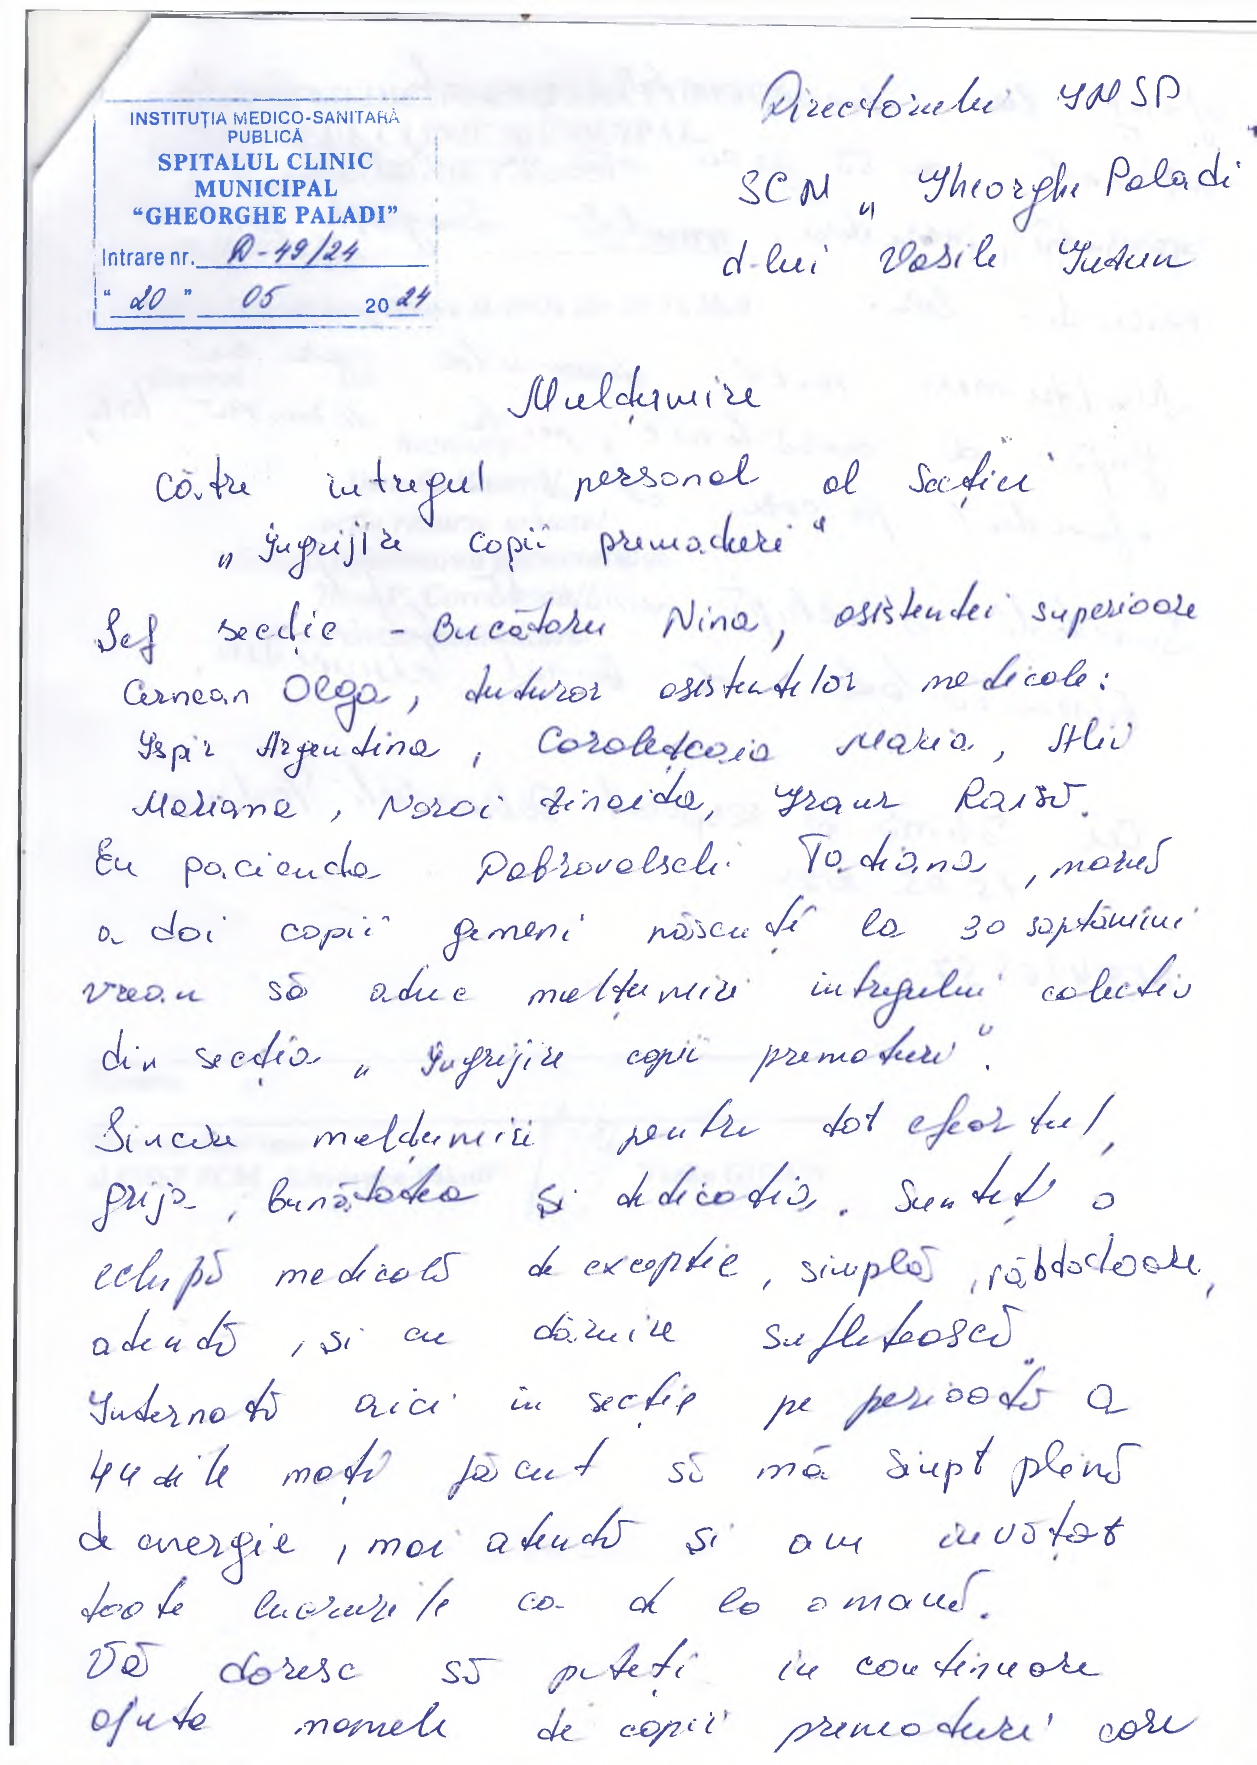 INSTITUȚIA MEDICO-SANITARĂ
PUBLICĂ
SPITALUL CLINIC
MUNICIPAL
“GHEORGHE PALADI”
Intrare nr. D-49/24
“ 20 ” 05 2024
Directorului IMSP
SCM „Gheorghe Paladi
d-lui Vasile Guțun
Mulțumire
Către intregul personal al Secției
„Îngrijire copii prematuri“
Șef secție - Bucătaru Nina, asistentei superioare
Cernean Olga, tuturor asistentelor medicale:
Ispir Argentina, Coralețcaia Maria,
Mariana, Noroi Zinaida, Graur Raisa.
Eu pacienta Dobrovolschi Tatiana, mamă
a doi copii gemeni născuți la 30 saptămîni
vreau să aduc mulțumiri intregului colectiv
din secția „Îngrijire copii prematuri“.
Sincere mulțumiri pentru tot efortul,
grija, bunătatea și dedicația. Sunteți o
echipă medicală de excepție, simplă, răbdatoare,
atentă, și cu dăruire sufletească.
Internată aici in secție pe perioadă a
44 zile mați făcut să mă simpt plină
de energie, mai atentă și am invățat
toate lucrurile ca de la o mamă.
Vă doresc să puteți in continuare
ajuta mamele de copii prematuri care